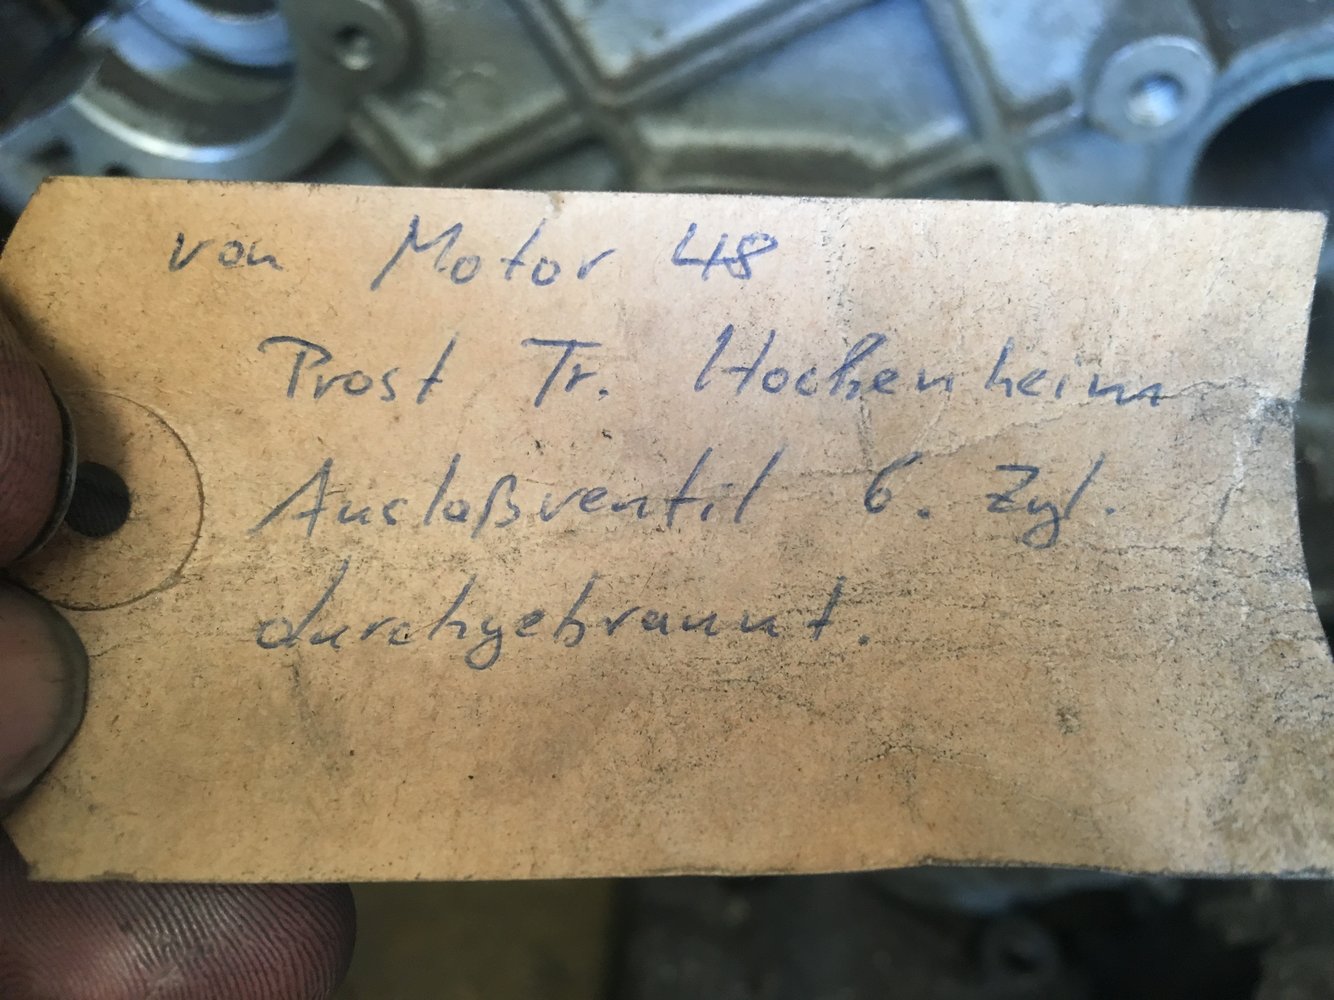 von Motor 48
Prost Tr. Hockenheim
Auslaßventil 6. Zyl.
durchgebrannt.